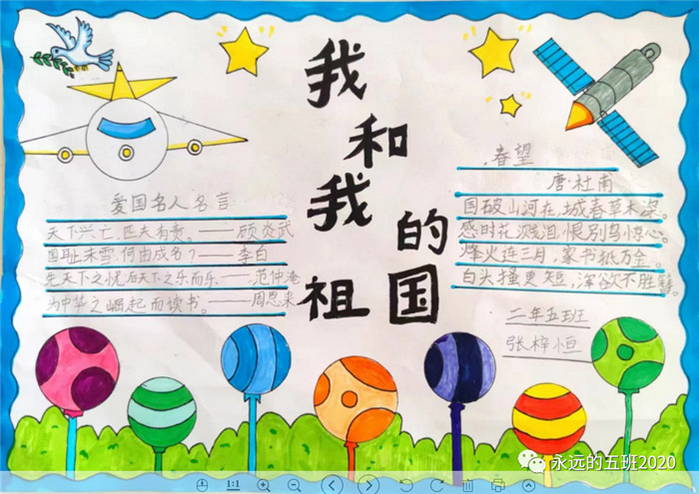 我和我的祖国
爱国名人名言
天下兴亡,匹夫有责。——顾炎武
国耻未雪,何由成名?——李白
先天下之忧而忧后天下之乐而乐——范仲淹
为中华之崛起而读书。——周恩来
春望
唐·杜甫
国破山河在,城春草木深。
感时花溅泪,恨别鸟惊心。
烽火连三月,家书抵万金。
白头搔更短,浑欲不胜簪。
二年五班
张梓恒
永远的五班2020
1:1